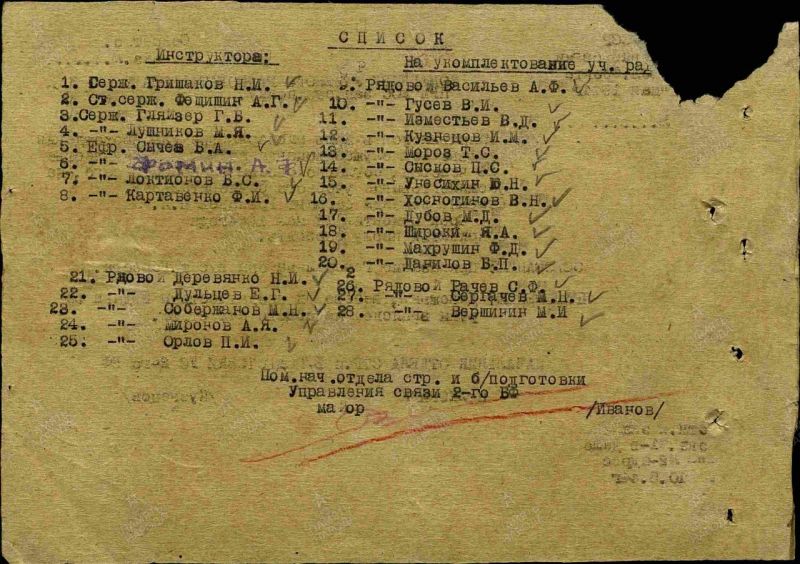 СПИСОК
Инструктора:
1. Серж. Гришаков Н.И.
2. Ст.серж. Фещишин А.Г.
3.Серж. Гляйзер Г.Б.
4. -"- Лушников М.Я.
5. Ефр. Сычев В.А.
6. -"- Фомин А.
7. -"- Локтионов В.С.
8. -"- Картавенко Ф.И.
На укомплектование уч. рад
9. Рядовой Васильев А.Ф.
10. -"- Гусев В.И.
11. -"- Изместьев В.Д.
12. -"- Кузнецов И.М.
13. -"- Мороз Т.С.
14. -"- Сысков П.С.
15. -"- Унесихин Ю.Н.
16. -"- Хоснотинов В.Н.
17. -"- Дубов М.Д.
18. -"- Широки Я.А.
19. -"- Махрушин Ф.Д.
20. -"- Данилов В.П.
21. Рядовой Деревянко Н.И.
22. -"- Дульцев Е.Г.
23. -"- Собержанов М.Н.
24. -"- Миронов А.Я.
25. -"- Орлов П.И.
26. Рядовой Рачев С.Ф.
27. -"- Сергачев М.Н.
28. -"- Вершинин М.И
Пом.нач.отдела стр. и б/подготовки
Управления связи 2-го БФ
майор /Иванов/